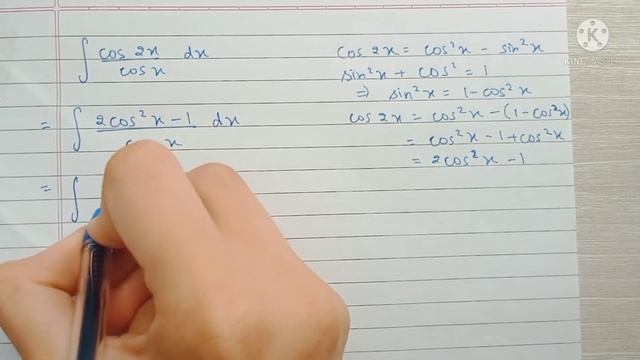 ∫ cos 2x / cos x dx
= ∫ 2cos²x − 1 / x dx
= ∫
cos 2x = cos²x − sin²x
sin²x + cos² = 1
⇒ sin²x = 1 − cos²x
cos 2x = cos²x − (1 − cos²x)
= cos²x − 1 + cos²x
= 2cos²x − 1
KINEMASTER